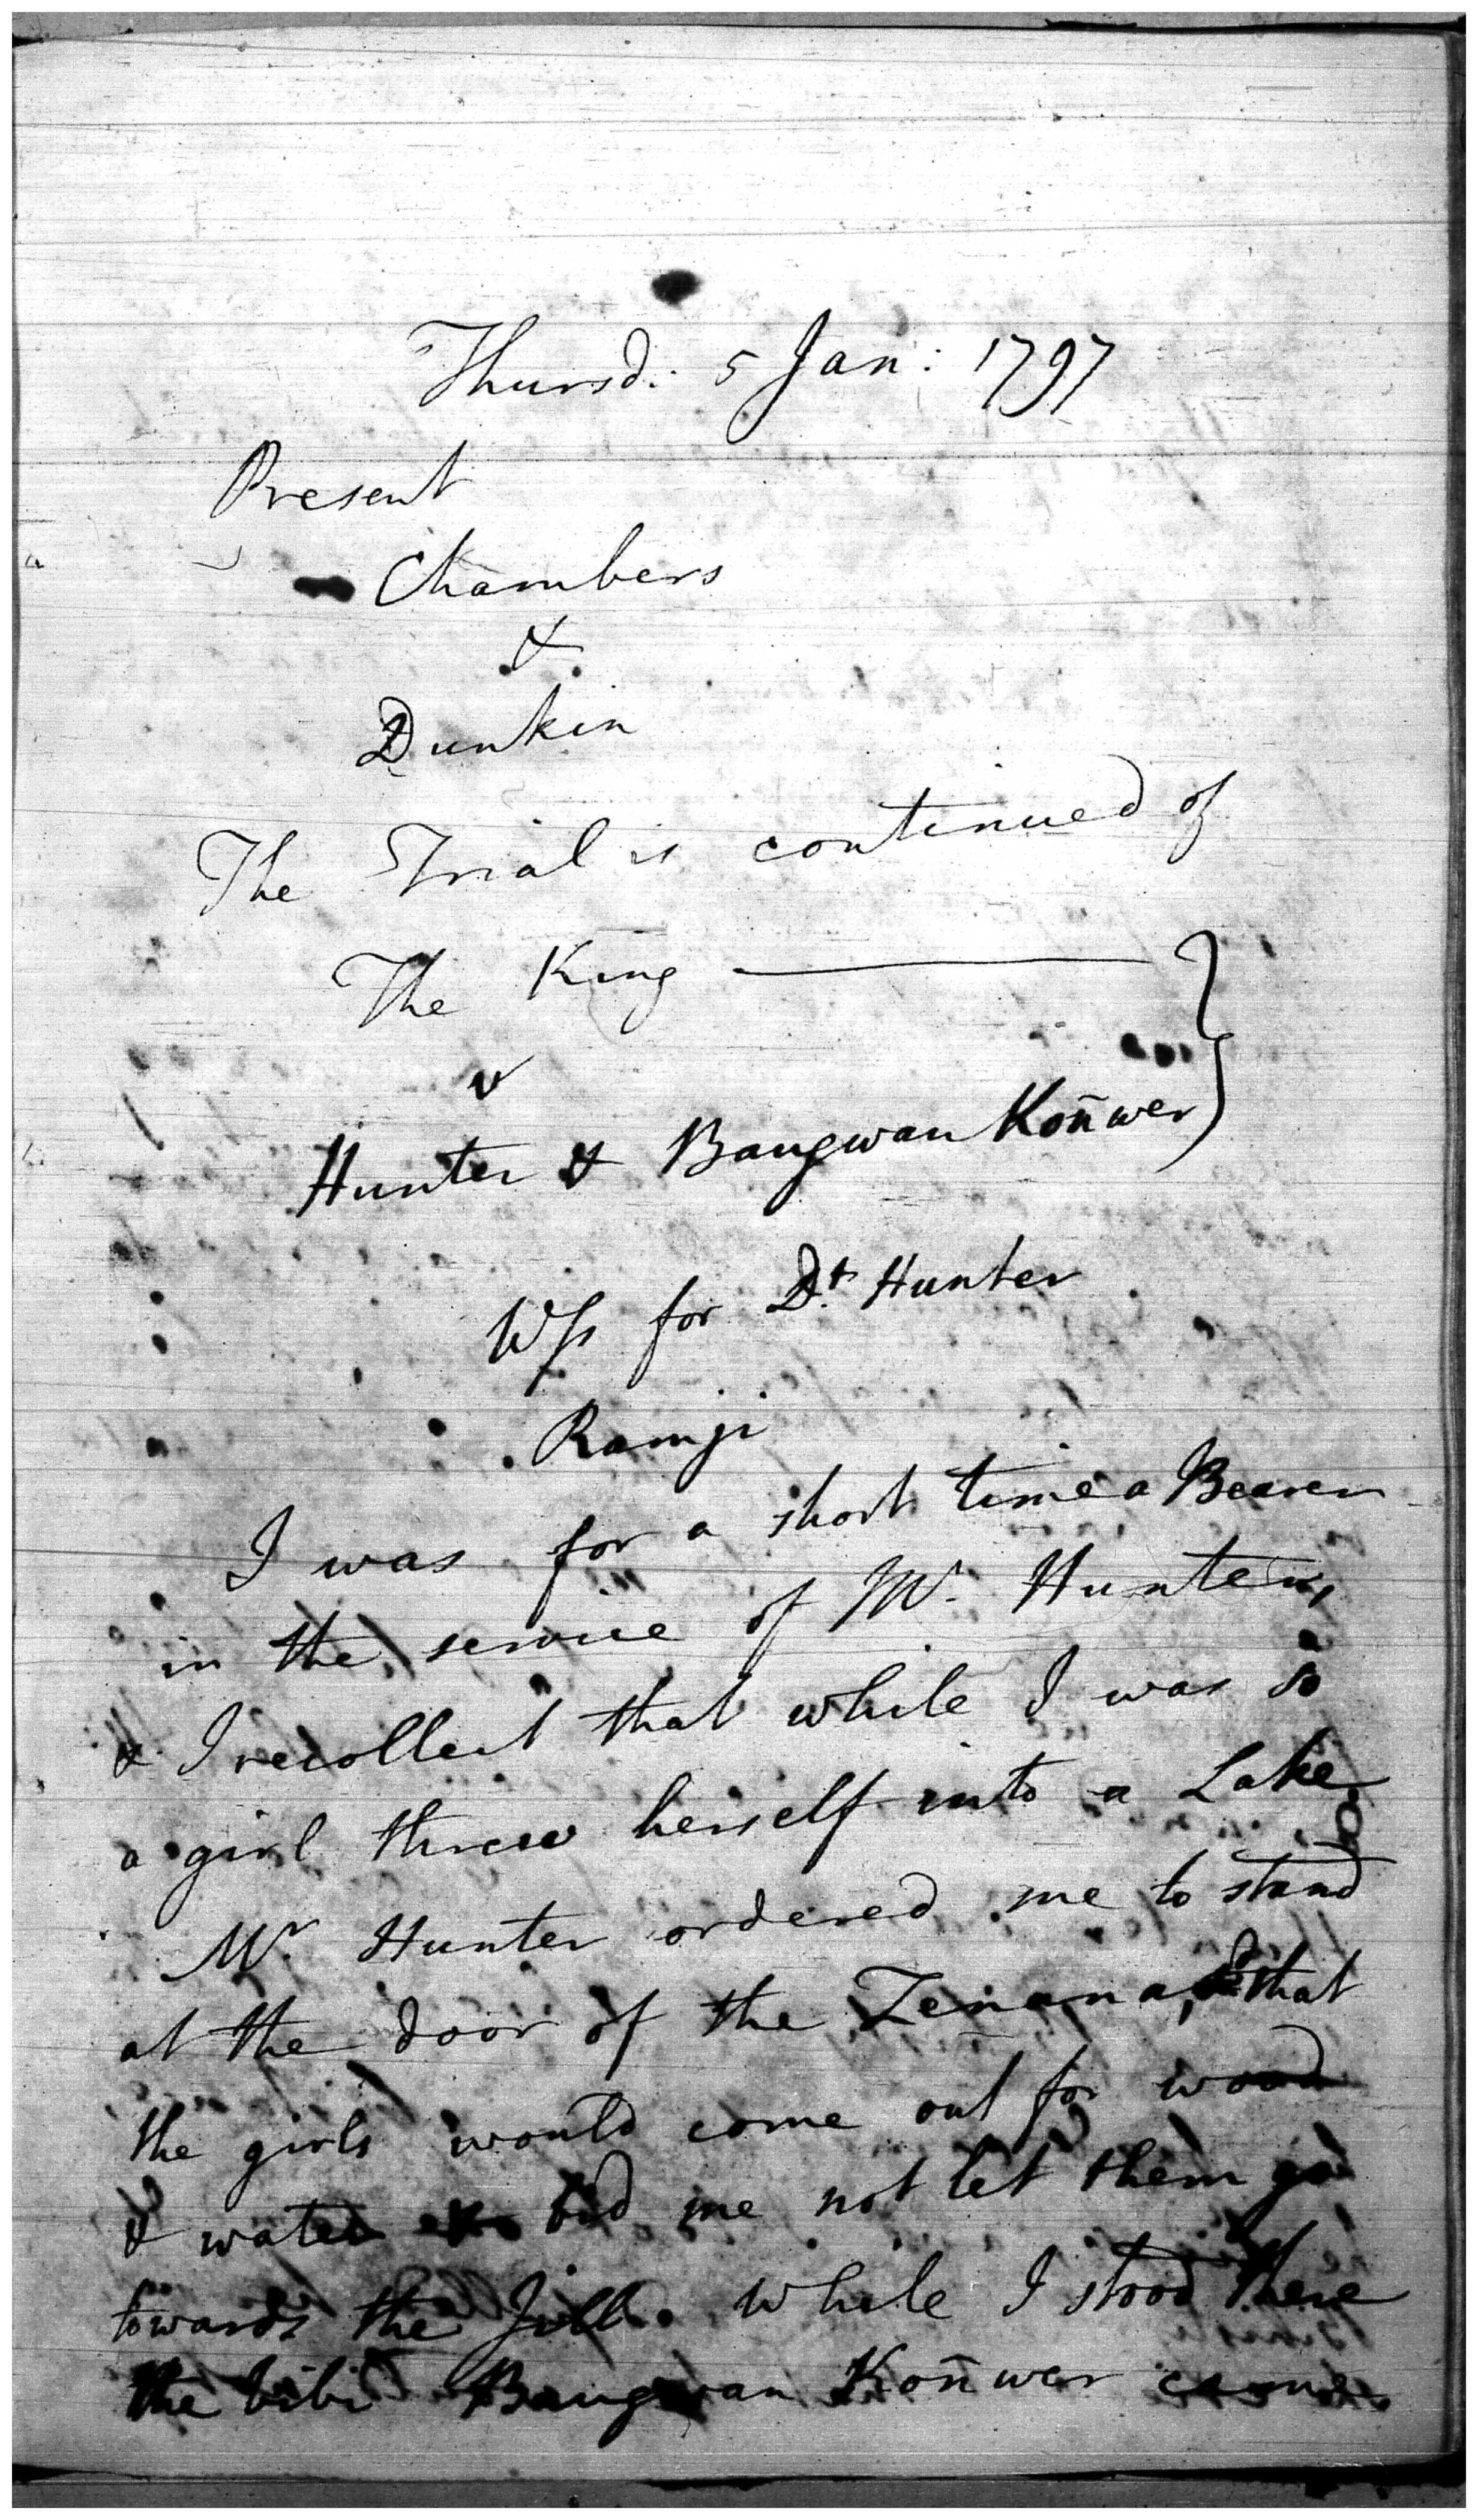 Thursd: 5 Jan: 1797
Present
Chambers
&
Dunkin
The Trial is continued of
The King
v
Hunter & Baugwan Koñwer
Wss for Dt Hunter
Ramji
I was for a short time a Bearer
in the service of Mr. Hunter,
& I recollect that while I was so
a girl threw herself into a Lake
Mr. Hunter ordered me to stand
at the door of the Zenana, that
the girls would come out for wood
& water bid me not let them go
towards the Jill. While I stood there
the bibi Baugwan Koñwer came